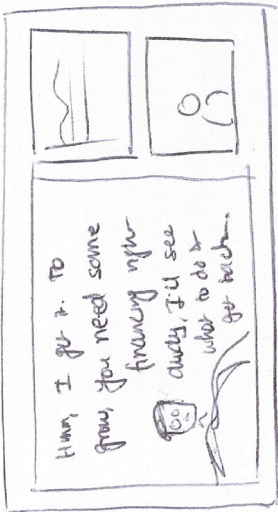 Hmm, I get it. To
grow, you need some
financing right
away, I'll see
what to do &
get back.